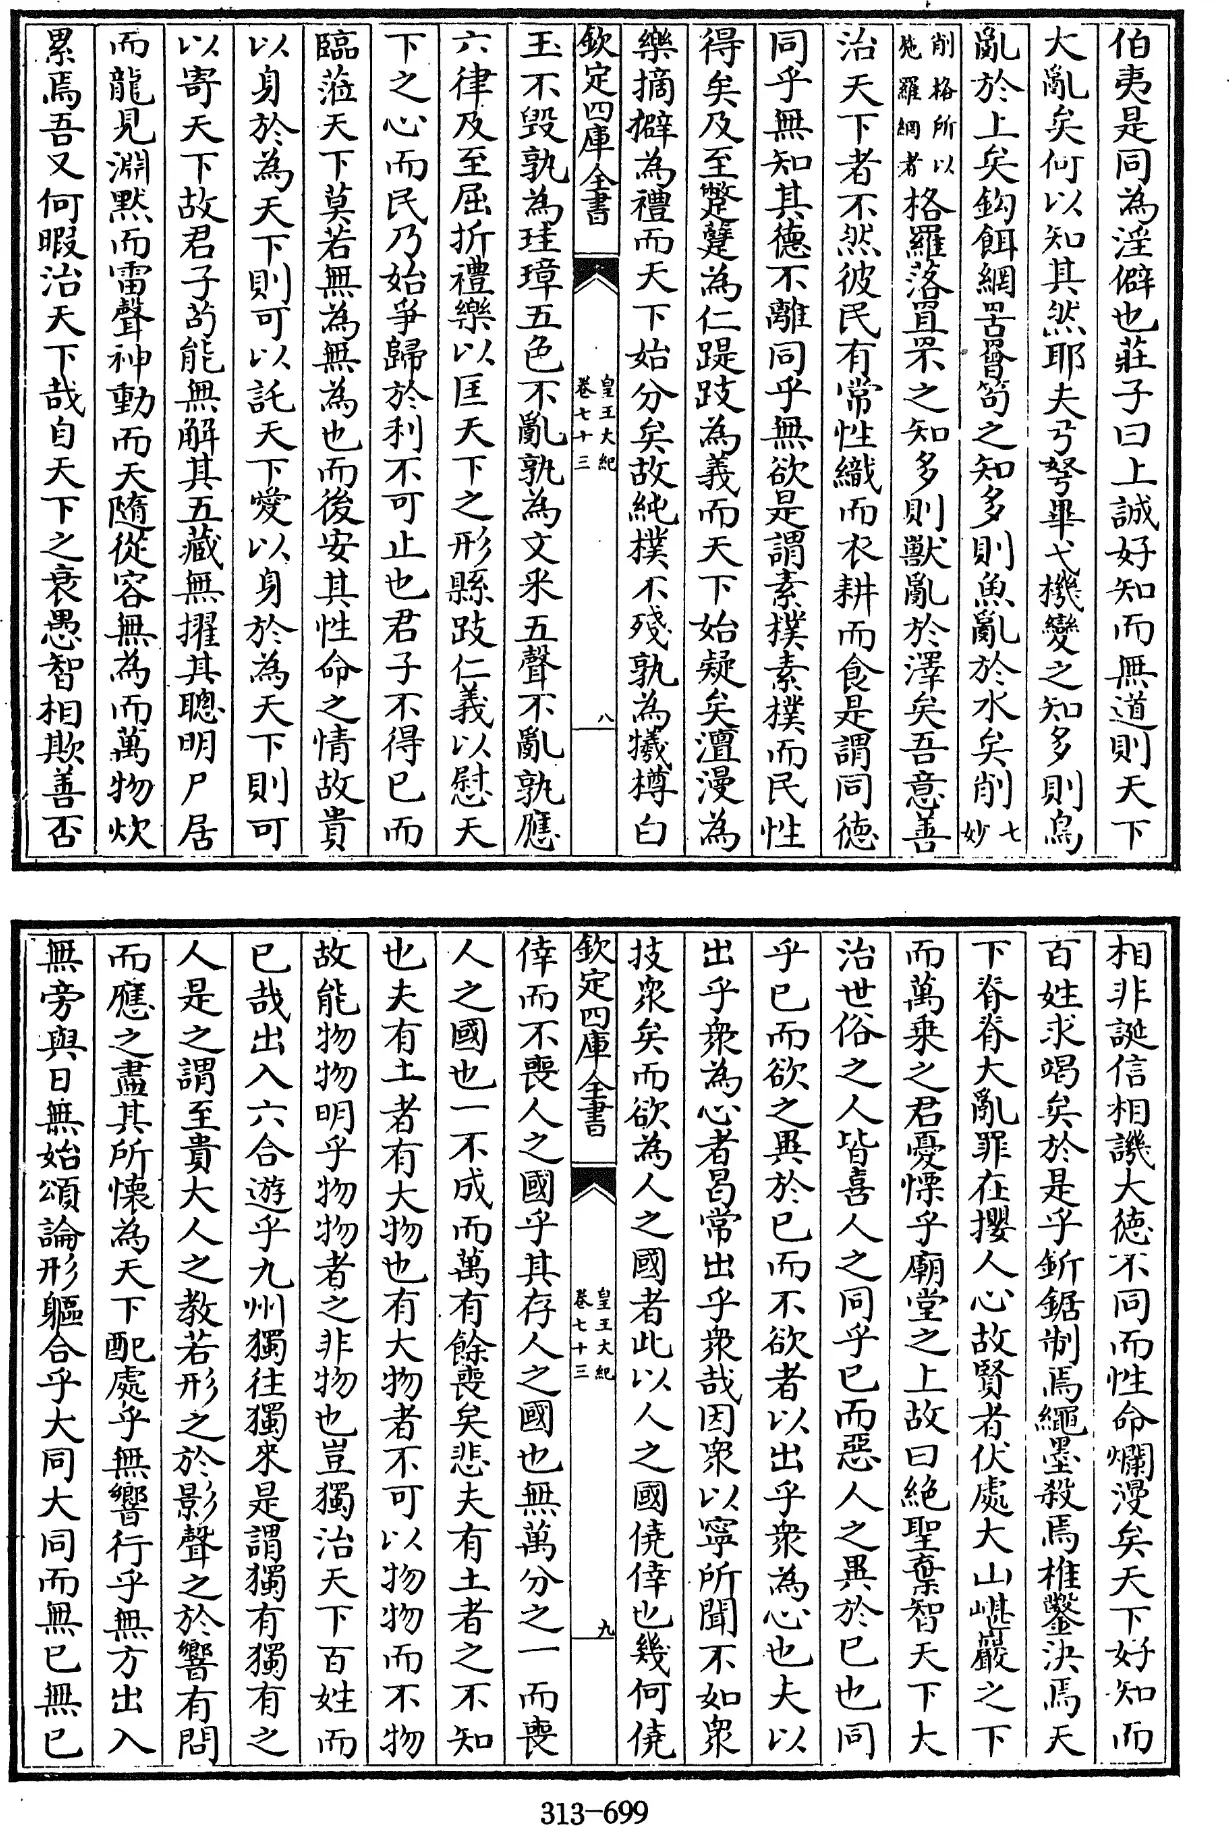 伯夷是同為淫僻也莊子曰上誠好知而無道則天下
大亂矣何以知其然耶夫弓弩畢弋機變之知多則鳥
亂於上矣鈎餌網罟罾笱之知多則魚亂於水矣削七妙
削格所以
施羅網者
格羅落罝罘之知多則獸亂於澤矣吾意善
治天下者不然彼民有常性織而衣耕而食是謂同徳
同乎無知其徳不離同乎無欲是謂素撲素撲而民性
得矣及至蹩躠為仁踶跂為義而天下始疑矣澶漫為
樂摘擗為禮而天下始分矣故純樸不殘孰為犧樽白
欽定四庫全書
皇王大紀
卷七十三
八
玉不毀孰為珪璋五色不亂孰為文采五聲不亂孰應
六律及至屈折禮樂以匡天下之形縣跂仁義以慰天
下之心而民乃始爭歸於利不可止也君子不得已而
臨蒞天下莫若無為無為也而後安其性命之情故貴
以身於為天下則可以託天下愛以身於為天下則可
以寄天下故君子茍能無解其五藏無擢其聰明尸居
而龍見淵默而雷聲神動而天隨從容無為而萬物炊
累焉吾又何暇治天下哉自天下之衰愚智相欺善否
相非誕信相譏大徳不同而性命爛漫矣天下好知而
百姓求竭矣於是乎釿鋸制焉繩墨殺焉椎鑿決焉天
下脊脊大亂罪在攖人心故賢者伏處大山嵁巖之下
而萬乗之君憂慄乎廟堂之上故曰絶聖棄智天下大
治世俗之人皆喜人之同乎已而惡人之異於已也同
乎已而欲之異於已而不欲者以出乎衆為心也夫以
出乎衆為心者曷常出乎衆哉因衆以寧所聞不如衆
技衆矣而欲為人之國者此以人之國僥倖也幾何僥
欽定四庫全書
皇王大紀
卷七十三
九
倖而不喪人之國乎其存人之國也無萬分之一而喪
人之國也一不成而萬有餘喪矣悲夫有土者之不知
也夫有土者有大物也有大物者不可以物物而不物
故能物物明乎物物者之非物也豈獨治天下百姓而
已哉出入六合遊乎九州獨往獨來是謂獨有獨有之
人是之謂至貴大人之教若形之於影聲之於響有問
而應之盡其所懐為天下配處乎無響行乎無方出入
無旁與日無始頌論形軀合乎大同大同而無已無已
313-699